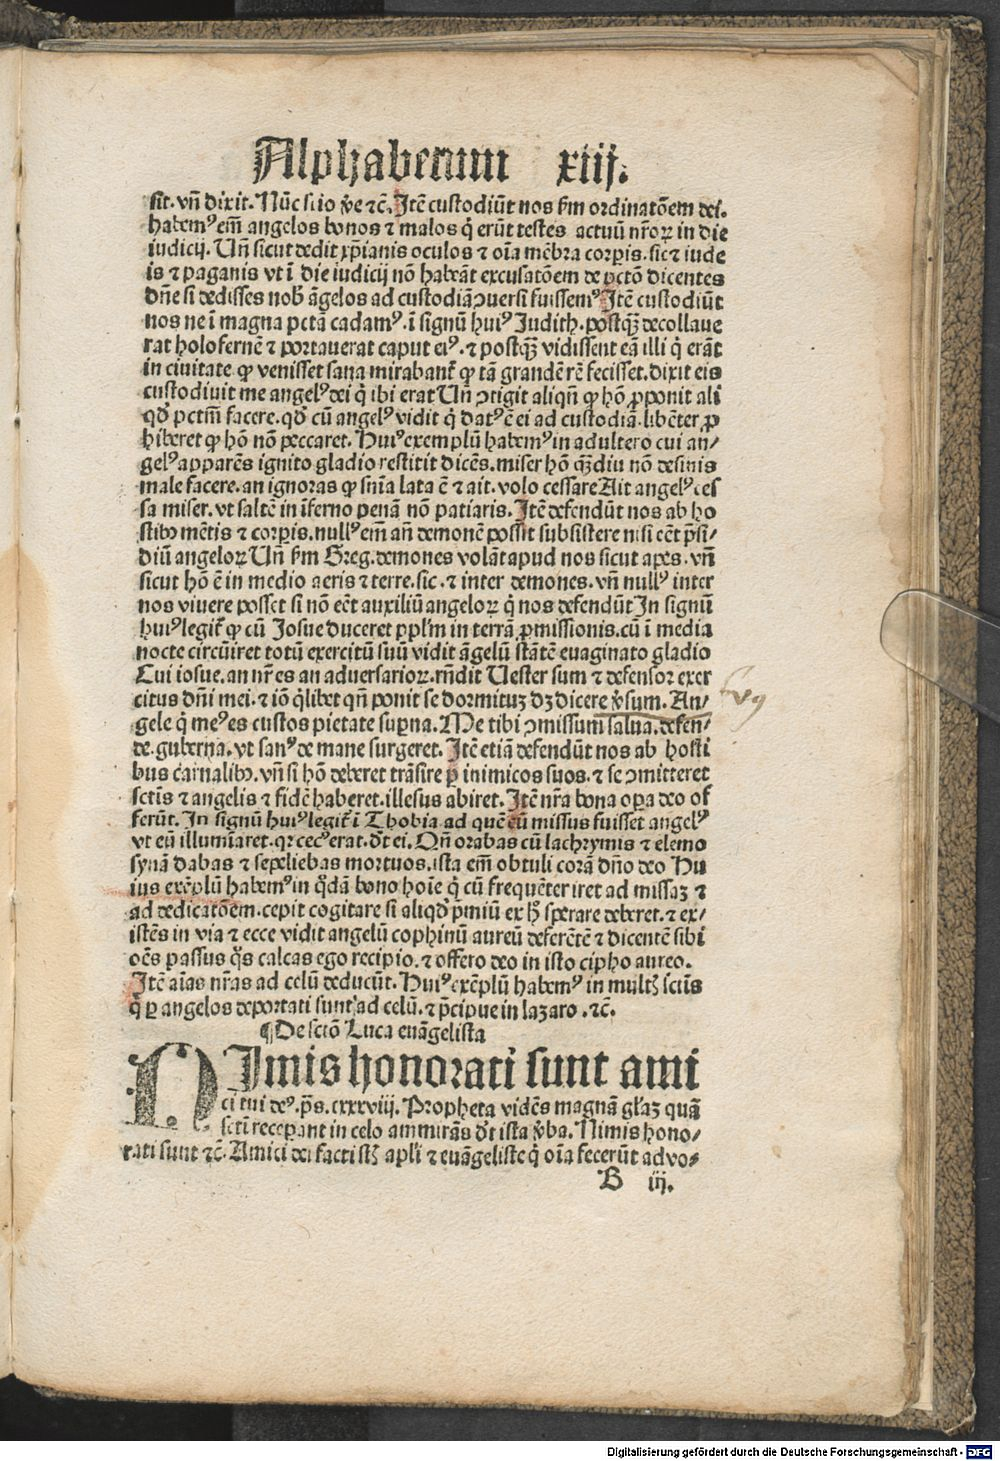 Alphabetum xiij.
sit. vñ dixit. Nūc scio ṽe ⁊c̄. Itē custodiūt nos ẜm ordinatōem dei.
habemꝰ em̄ angelos bonos ⁊ malos q̇ erūt testes actuū nr̄oꝝ in die
iudicij. Uñ sicut dedit xp̄ianis oculos ⁊ oīa mēbra corꝑis. sic ⁊ iude
is ⁊ paganis vt ī die iudicij nō habeāt excusatōem de pctō dicentes
dn̄e si dedisses nob̄ āgelos ad custodiā ↄuersi fuissemꝰ Itē custodiūt
nos ne ī magna pctā cadamꝰ. ī signū huiꝰ Judith. postqꝫ̄ decollaue
rat holofernē ⁊ portauerat caput eiꝰ. ⁊ postqꝫ̄ vidissent eā illi q̇ erāt
in ciuitate ꝙ venisset sana mirabant̄ ꝙ tā grandē rē fecisset. dixit eis
custodiuit me angelꝰ dei q̇ ibi erat Uñ ↄtigit aliqn̄ ꝙ hō ꝓponit ali
qd̄ pctm̄ facere. qd̄ cū angelꝰ vidit q̇ datꝰ ē ei ad custodiā. libēter ꝓ
hiberet ꝙ hō nō peccaret. Huiꝰ exemplū habemꝰ in adultero cui an⸗
gelꝰ apparēs ignito gladio restitit dicēs. miser hō qꝫ̄diu nō desinis
male facere. an ignoras ꝙ sn̄ia lata ē ⁊ ait. volo cessare Ait angelꝰ ces
sa miser. vt saltē in īferno penā nō patiaris. Itē defendūt nos ab ho
stibꝰ mētis ⁊ corꝑis. nullꝰ em̄ añ demonē possit subsistere nisi eēt p̄si⸗
diū angeloꝝ Uñ ẜm Greg. demones volāt apud nos sicut apes. vñ
sicut hō ē in medio aeris ⁊ terre. sic. ⁊ inter demones. vñ nullꝰ inter
nos viuere posset si nō eēt auxiliū angeloꝝ q̇ nos defendūt In signū
huiꝰ legit̄ ꝙ cū Josue duceret ppl̄m in terrā ꝓmissionis. cū ī media
nocte circūiret totū exercitū suū vidit āgelū stātē euaginato gladio
Cui iosue. an nr̄ es an aduersarioꝝ. rñdit Uester sum ⁊ defensor exer
citus dn̄i mei. ⁊ iō q̇libet qn̄ ponit se dormituꝫ dꝫ dicere ṽsum. An⸗
gele q̇ meꝰ es custos pietate suꝑna. Me tibi ↄmissum salua. defen⸗
de. guberna. vt sanꝰ de mane surgeret. Itē etiā defendūt nos ab hosti
bus carnalibꝰ. vñ si hō deberet trāsire ꝑ inimicos suos. ⁊ se ↄmitteret
sctīs ⁊ angelis ⁊ fidē haberet. illesus abiret. Itē nr̄a bona oꝑa deo of
ferūt. In signū huiꝰ legit̄ ī Thobia ad quē cū missus fuisset angelꝰ
vt eū illumīaret. qꝛ cecꝰ erat. dt̄ ei. Qn̄ orabas cū lachrymis ⁊ elemo
synā dabas ⁊ sepeliebas mortuos. ista em̄ obtuli corā dn̄o deo Hu
ius exēplū habemꝰ in qd̄ā bono hoīe q̇ cū frequēter iret ad missaꝫ ⁊
ad dedicatōem. cepit cogitare si aliqd̄ p̄miū ex h̄ sperare deberet. ⁊ ex⸗
istēs in via ⁊ ecce vidit angelū cophinū aureū deferētē ⁊ dicentē sibi
oēs passus q̊s calcas ego recipio. ⁊ offero deo in isto cipho aureo.
Itē aīas nr̄as ad celū deducūt. Huiꝰ exēplū habemꝰ in multꝭ sctīs
q̇ ꝑ angelos deportati sunt ad celū. ⁊ p̄cipue in lazaro. ⁊c̄.
¶ De sctō Luca euāgelista
NImis honorati sunt ami
ci tui deꝰ. ps̄. cxxxviij. Propheta vidēs magnā gl̄aꝫ quā
scti receperant in celo ammirās dt̄ ista ṽba. Nimis hono⸗
rati sunt ⁊c̄. Amici dei facti st̄ apl̄i ⁊ euāgeliste q̇ oīa fecerūt ad vo⸗
B iij.
Digitalisierung gefördert durch die Deutsche Forschungsgemeinschaft - DFG